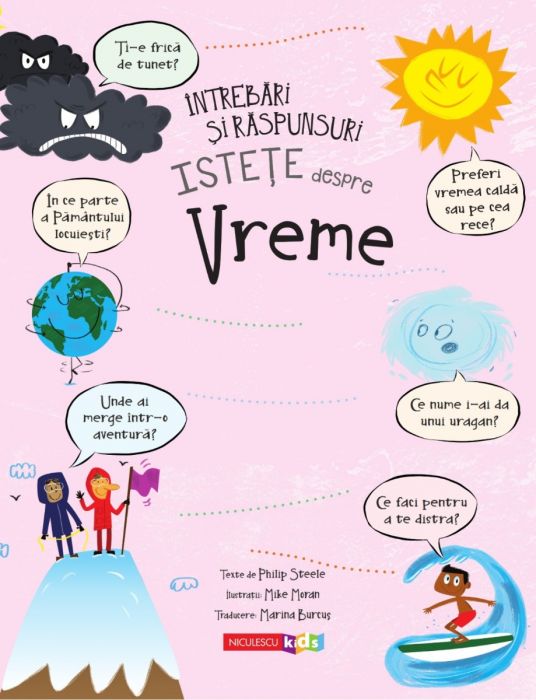 Ți-e frică
de tunet?
ÎNTREBĂRI
ȘI RĂSPUNSURI
ISTEȚE despre
Vreme
Preferi
vremea caldă
sau pe cea
rece?
În ce parte
a Pământului
locuiești?
Unde ai
merge într-o
aventură?
Ce nume i-ai da
unui uragan?
Ce faci pentru
a te distra?
Texte de Philip Steele
Ilustrații: Mike Moran
Traducere: Marina Burcuș
NICULESCU kids